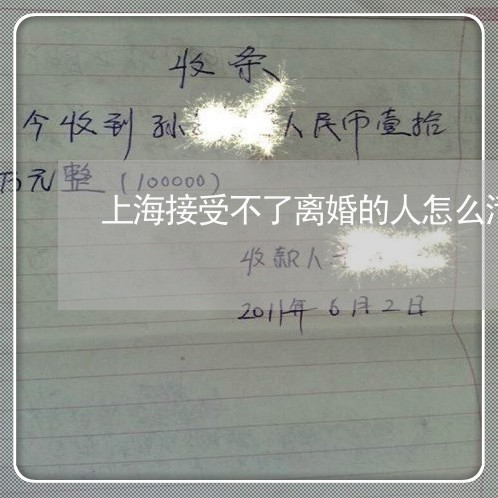 收条
今收到孙人民币壹拾
万元整（100000）
上海接受不了离婚的人怎么
收款人
2011年6月2日